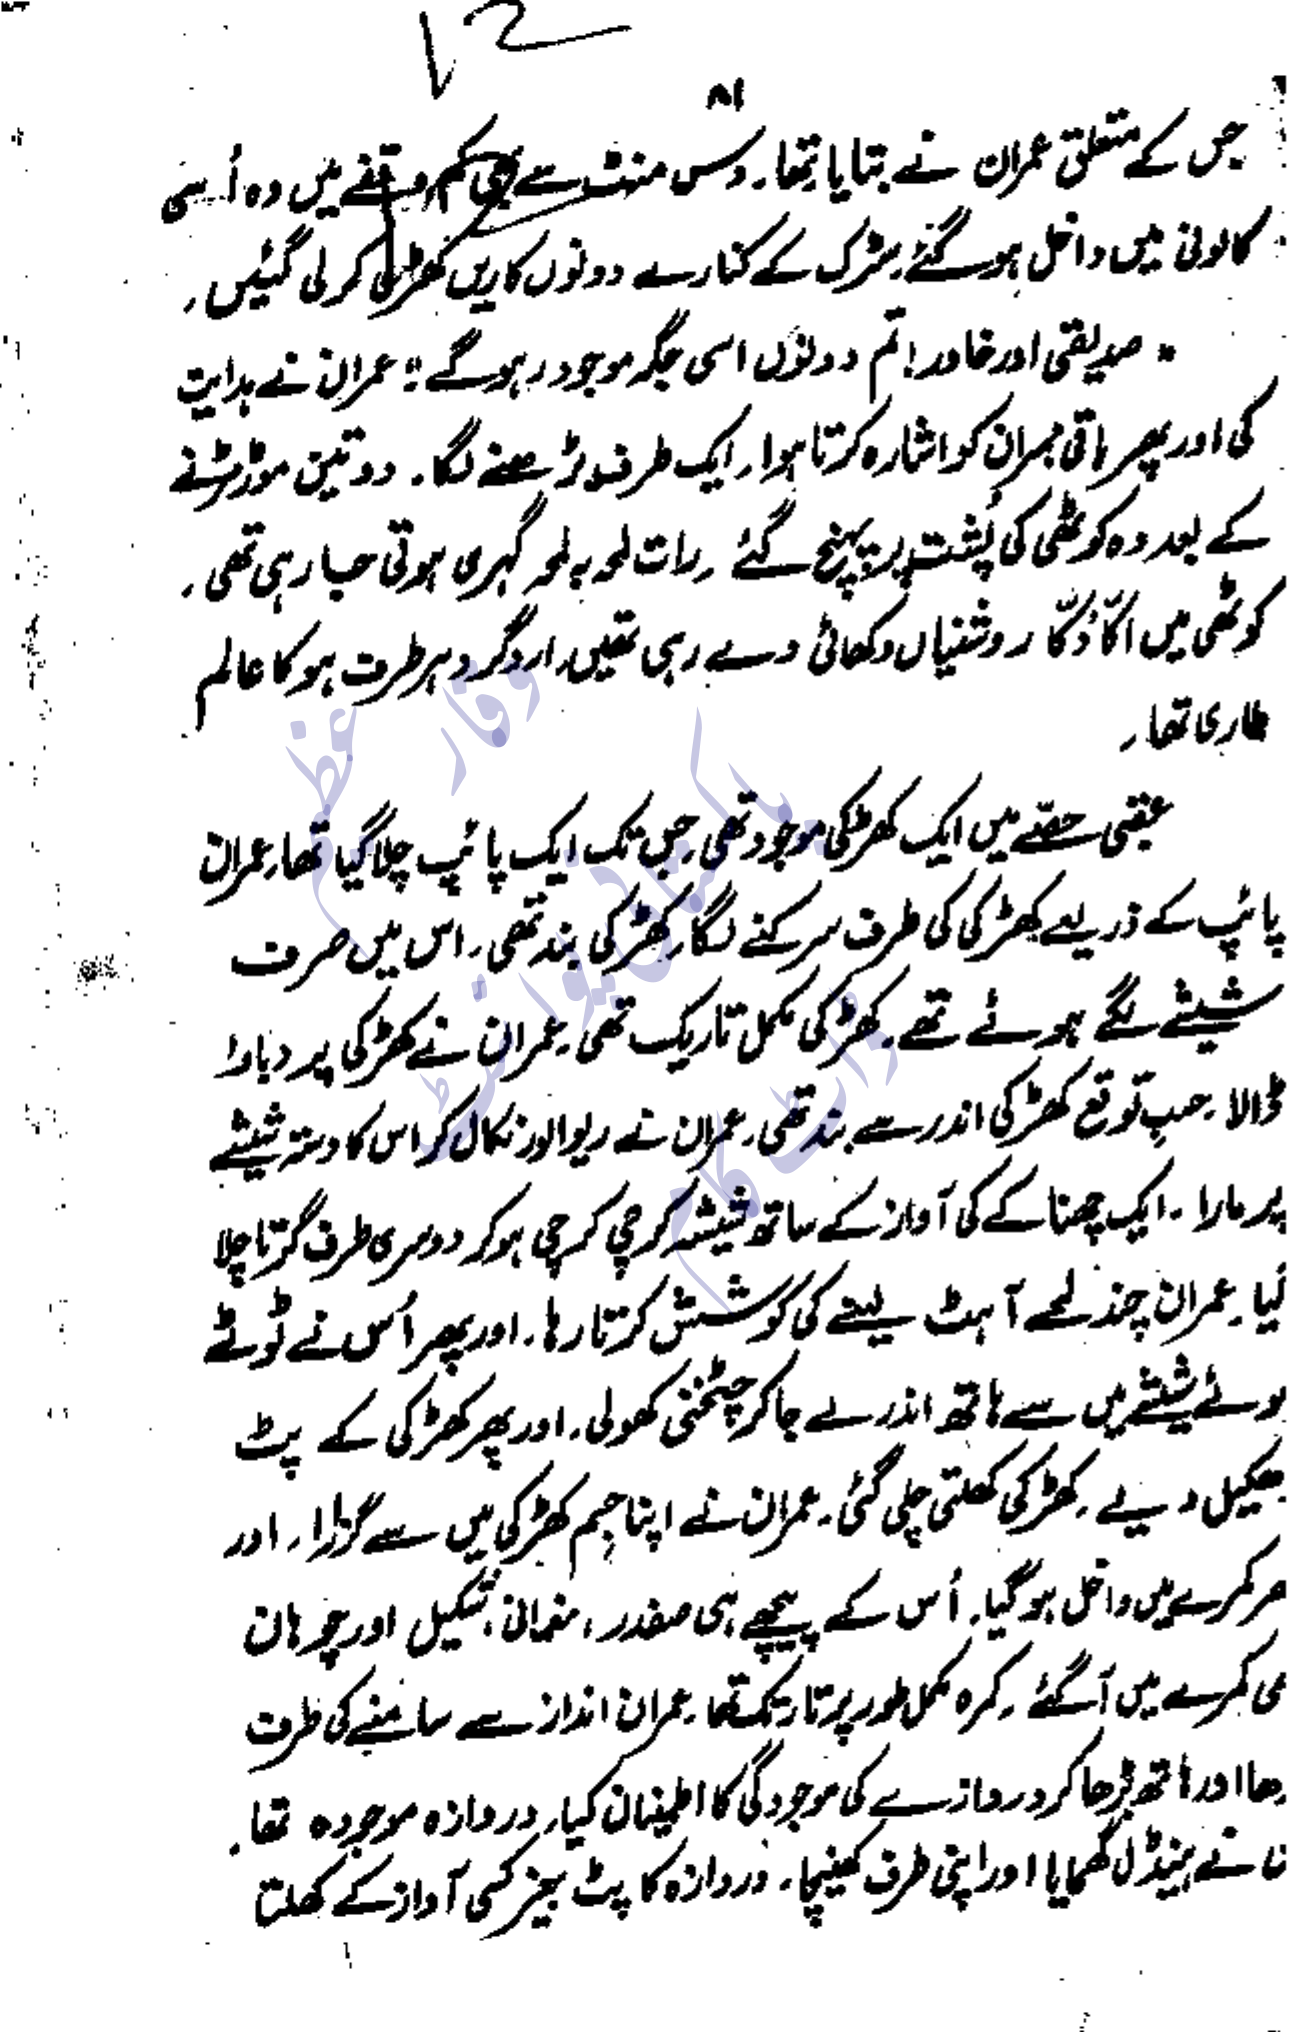 ۸۱
جس کے متعلق عمران نے بتایا تھا۔ دس منٹ سے بھی کم وقفے میں وہ اُسی
کالونی میں داخل ہو گئے۔ سڑک کے کنارے دونوں کاریں کھڑی کر لی گئیں۔
"صدیقی اور خاور! تم دونوں اسی جگہ موجود رہو گے"؛ عمران نے ہدایت
کی اور پھر باقی ممبران کو اشارہ کرتا ہوا۔ ایک طرف بڑھنے لگا۔ دو تین موڑ مڑنے
کے بعد وہ کوٹھی کی پُشت پر پہنچ گئے۔ رات لمحہ بہ لمحہ گہری ہوتی جا رہی تھی۔
کوٹھی میں اکّا دُکّا روشنیاں دکھائی دے رہی تھیں۔ ارد گرد ہر طرف ہو کا عالم
طاری تھا۔
عقبی حصّے میں ایک کھڑکی موجود تھی۔ جس تک ایک پائپ چلا گیا تھا۔ عمران
پائپ کے ذریعے کھڑکی کی طرف سرکنے لگا۔ کھڑکی بند تھی۔ اس میں صرف
شیشے لگے ہوئے تھے۔ کھڑکی مکمل تاریک تھی۔ عمران نے کھڑکی پر دباؤ
ڈالا۔ حسبِ توقع کھڑکی اندر سے بند تھی۔ عمران نے ریوالور نکال کر اس کا دستہ شیشے
پر مارا۔ ایک چھناکے کی آواز کے ساتھ شیشہ کرچی کرچی ہو کر دوسری طرف گرتا چلا
گیا۔ عمران چند لمحے آہٹ لینے کی کوشش کرتا رہا۔ اور پھر اُس نے ٹوٹے
ہوئے شیشے میں سے ہاتھ اندر لے جا کر چٹخنی کھولی۔ اور پھر کھڑکی کے پٹ
دھکیل دیے۔ کھڑکی کھلتی چلی گئی۔ عمران نے اپنا جسم کھڑکی میں سے گزارا۔ اور
کمرے میں داخل ہو گیا۔ اُس کے پیچھے ہی صفدر، نعمانی، شکیل اور چوہان
کمرے میں آ گئے۔ کمرہ مکمل طور پر تاریک تھا۔ عمران اندازے سے سامنے کی طرف
اور ہاتھ بڑھا کر دروازے کی موجودگی کا اطمینان کیا۔ دروازہ موجودہ تھا۔
نے ہینڈل گھمایا اور اپنی طرف کھینچا۔ دروازہ کا پٹ بغیر کسی آواز کے کھلتا
وقار عظیم
پاکستانی پوائنٹ
ڈاٹ کام